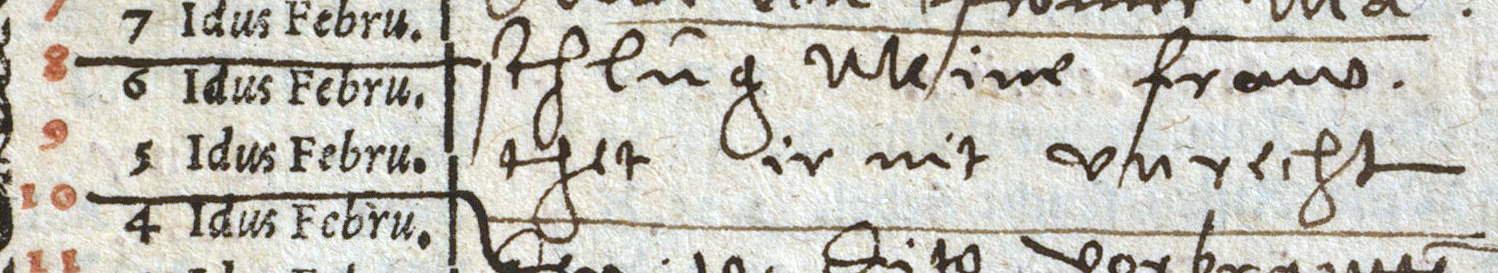 7 Idus Febru.
8
6 Idus Febru. schlůg Meine fraw.
9
5 Idus Febru. thet ir nit vnrecht
10
4 Idus Febru.
11